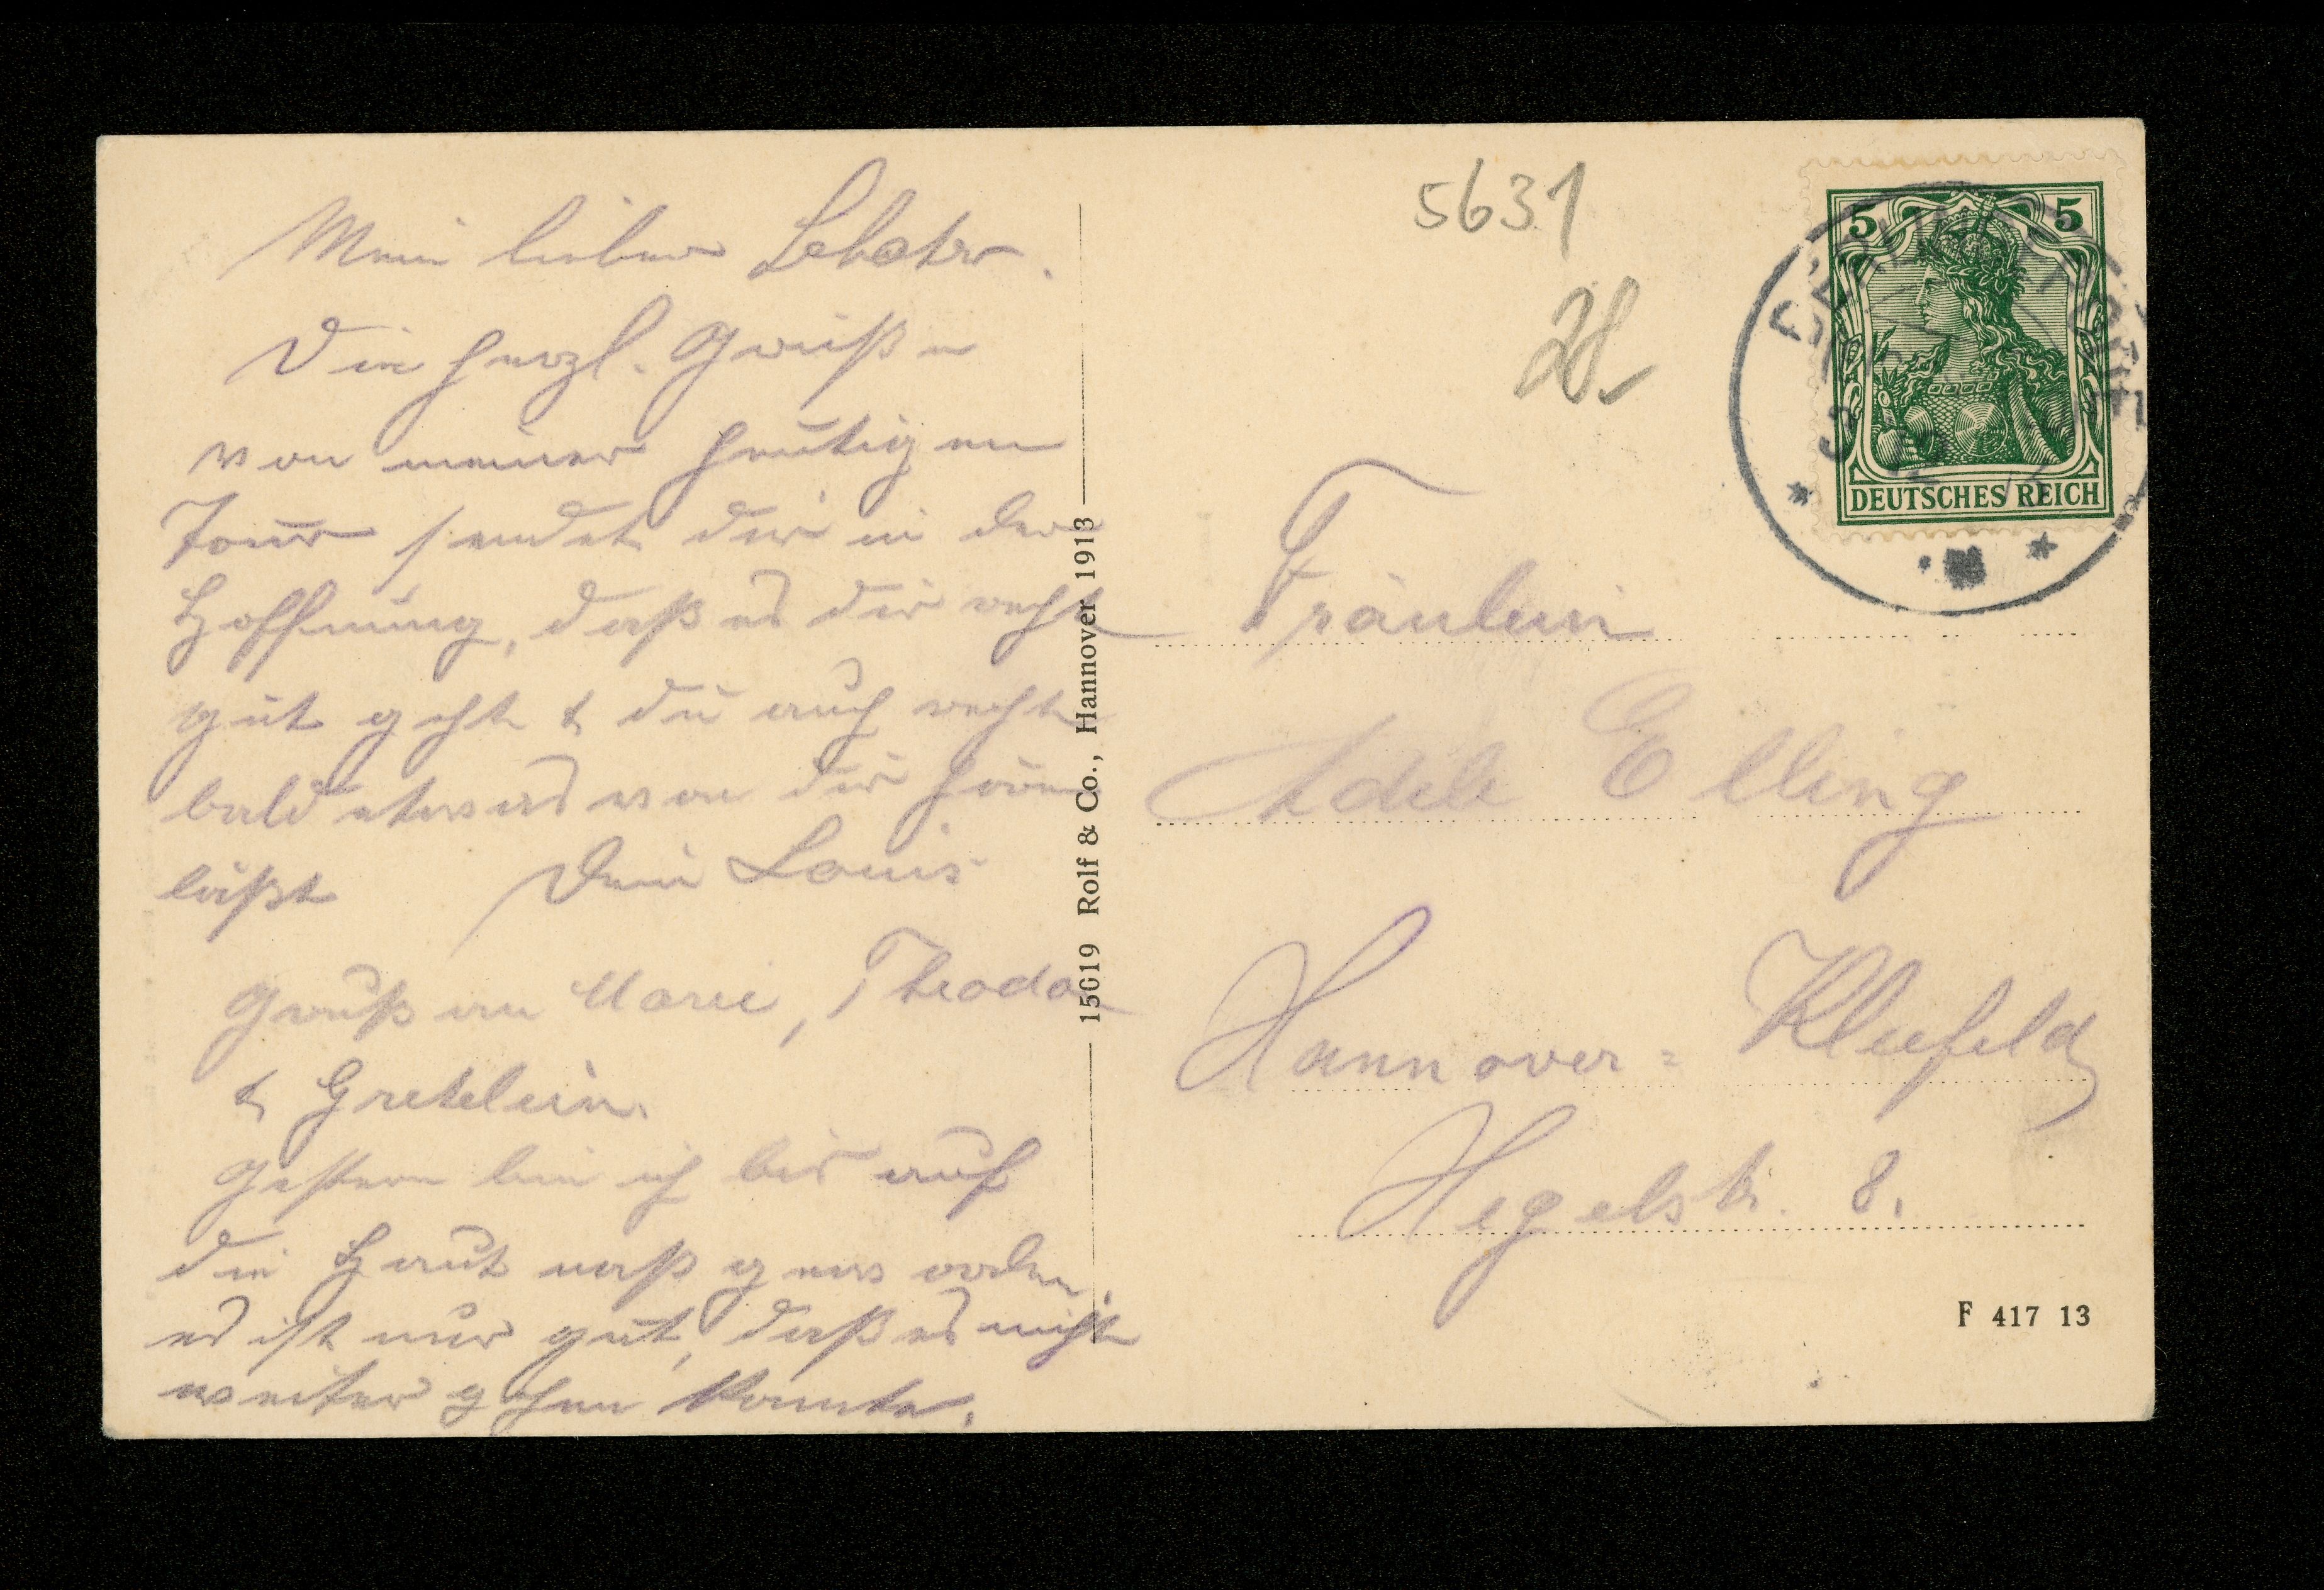 Mein lieber
Die herzl. Grüße
von meiner heutigen
Tour sendet dir in der
Hoffnung, daß es dir recht
gut geht & du auch recht
bald etwas von dir hören
läßt Dein Louis
Gruß an Marie, Theodor
& Gretelein.
Gestern bin ich bis auf
die Haut naß geworden,
es ist nur gut, daß es nicht
weiter gehen konnte.
15019 Rolf & Co., Hannover 1913
5631
28.
5 5
DEUTSCHES REICH
Fräulein
Adele Elling
Hannover=Kleefeld
Hegelstr. 8.
F 417 13